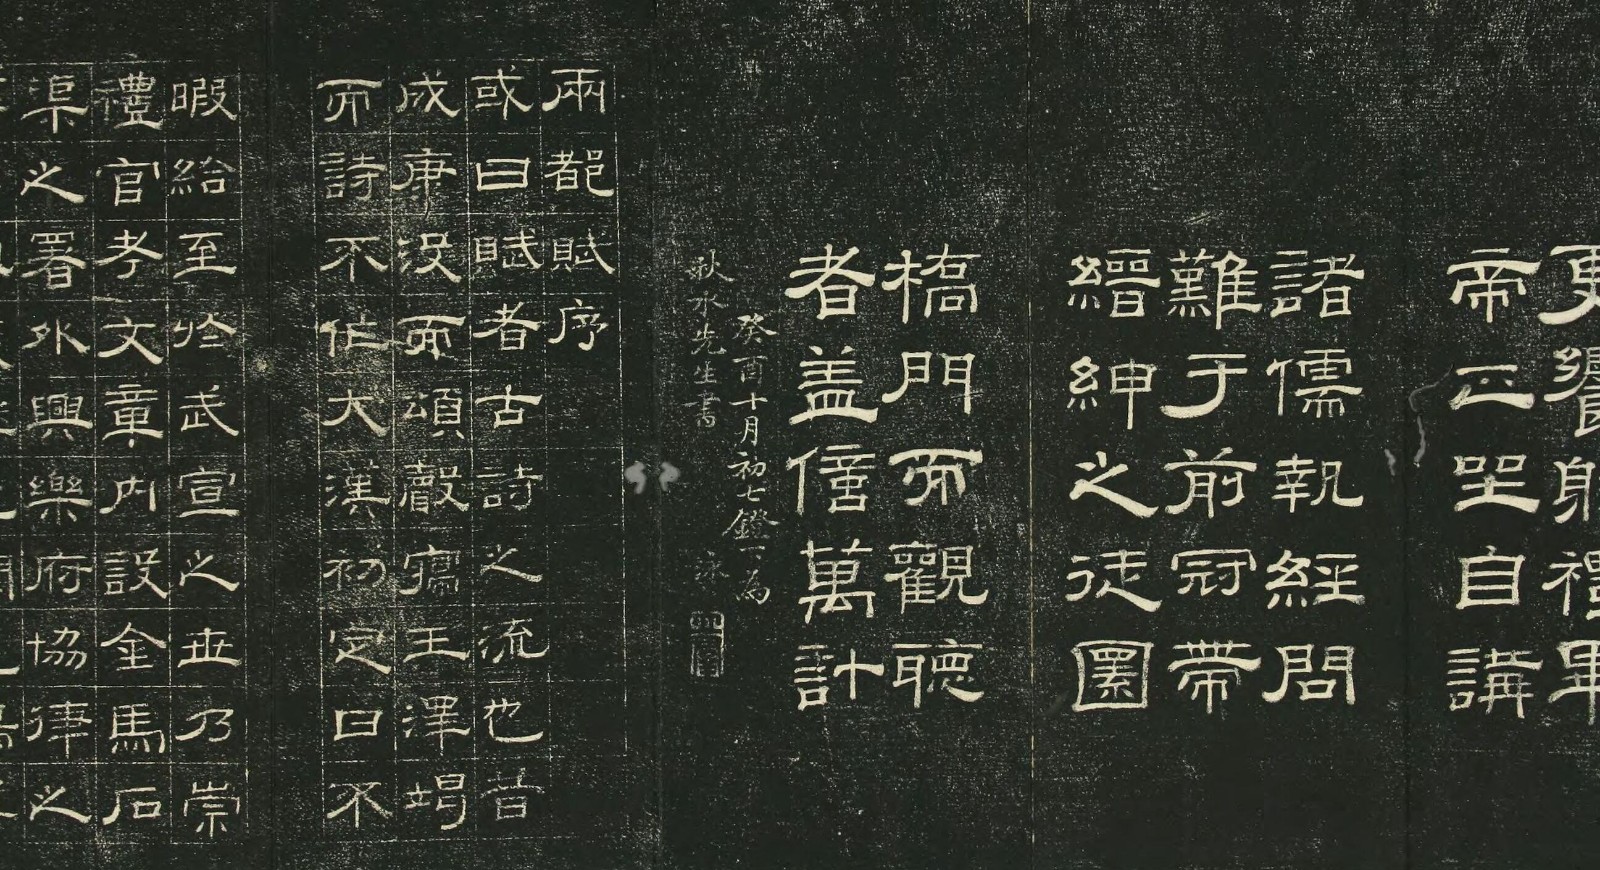 更饗射禮畢
帝正坐自講
諸儒執經問
難于前冠帶
縉紳之徒圜
橋門而觀聽
者盖億萬計
癸酉十月初七鐙下為
秋水先生書 泳
兩都賦序
或曰賦者古詩之流也昔
成康没而頌聲寢王澤竭
而詩不作大漢初定日不
暇給至於武宣之世乃崇
禮官考文章內設金馬石
渠之署外興樂府協律之